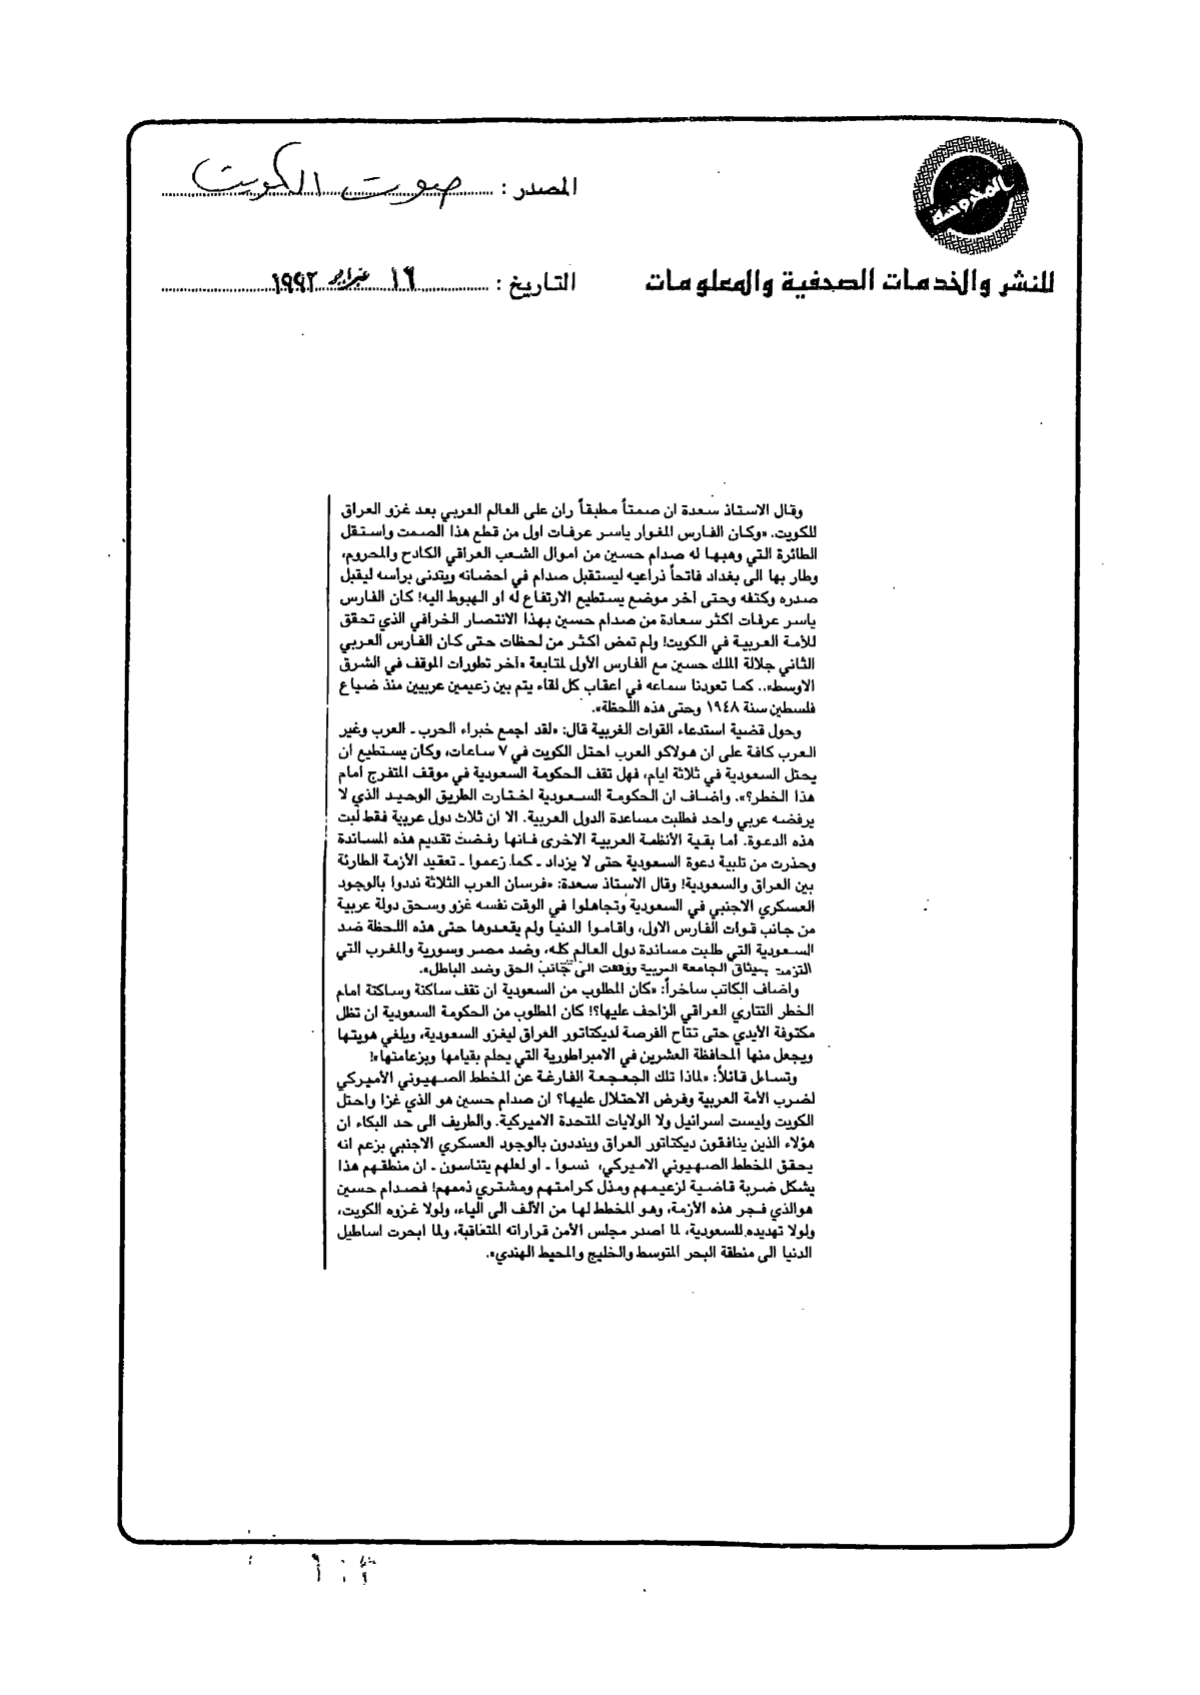 المحروسة
المصدر : صوت الكويت
للنشر والخدمات الصحفية والمعلومات
التاريخ : ١٦ فبراير ١٩٩٢
وقال الاستاذ سعدة ان صمتاً مطبقاً ران على العالم العربي بعد غزو العراق
للكويت. «وكان الفارس المغوار ياسر عرفات اول من قطع هذا الصمت واستقل
الطائرة التي وهبها له صدام حسين من اموال الشعب العراقي الكادح والمحروم،
وطار بها الى بغداد فاتحاً ذراعيه ليستقبل صدام في احضانه ويتدنى براسه ليقبل
صدره وكتفه وحتى آخر موضع يستطيع الارتفاع له او الهبوط اليه! كان الفارس
ياسر عرفات اكثر سعادة من صدام حسين بهذا الانتصار الخرافي الذي تحقق
للأمة العربية في الكويت! ولم تمض اكثر من لحظات حتى كان الفارس العربي
الثاني جلالة الملك حسين مع الفارس الأول لمتابعة «آخر تطورات الموقف في الشرق
الاوسط».. كما تعودنا سماعه في اعقاب كل لقاء يتم بين زعيمين عربيين منذ ضياع
فلسطين سنة ١٩٤٨ وحتى هذه اللحظة».
وحول قضية استدعاء القوات الغربية قال: «لقد اجمع خبراء الحرب ـ العرب وغير
العرب كافة على ان هولاكو العرب احتل الكويت في ٧ ساعات، وكان يستطيع ان
يحتل السعودية في ثلاثة ايام، فهل تقف الحكومة السعودية في موقف المتفرج أمام
هذا الخطر؟». واضاف ان الحكومة السعودية اختارت الطريق الوحيد الذي لا
يرفضه عربي واحد فطلبت مساعدة الدول العربية. الا ان ثلاث دول عربية فقط لبت
هذه الدعوة. اما بقية الأنظمة العربية الاخرى فانها رفضت تقديم هذه المساندة
وحذرت من تلبية دعوة السعودية حتى لا يزداد ـ كما زعموا ـ تعقيد الأزمة الطارئة
بين العراق والسعودية! وقال الاستاذ سعدة: «فرسان العرب الثلاثة نددوا بالوجود
العسكري الاجنبي في السعودية وتجاهلوا في الوقت نفسه غزو وسحق دولة عربية
من جانب قوات الفارس الاول، واقاموا الدنيا ولم يقعدوها حتى هذه اللحظة ضد
السعودية التي طلبت مساندة دول العالم كله، وضد مصر وسورية والمغرب التي
التزمت بميثاق الجامعة العربية ووقفت الى جانب الحق وضد الباطل».
واضاف الكاتب ساخراً: «كان المطلوب من السعودية ان تقف ساكنة وساكتة امام
الخطر التتاري العراقي الزاحف عليها؟! كان المطلوب من الحكومة السعودية ان تظل
مكتوفة الأيدي حتى تتاح الفرصة لديكتاتور العراق ليغزو السعودية، ويلغي هويتها
ويجعل منها المحافظة العشرين في الامبراطورية التي يحلم بقيامها وبزعامتها»!
وتساءل قائلاً: «لماذا تلك الجعجعة الفارغة عن المخطط الصهيوني الأميركي
لضرب الأمة العربية وفرض الاحتلال عليها؟ ان صدام حسين هو الذي غزا واحتل
الكويت وليست اسرائيل ولا الولايات المتحدة الاميركية. والطريف الى حد البكاء ان
هؤلاء الذين ينافقون ديكتاتور العراق وينددون بالوجود العسكري الاجنبي بزعم انه
يحقق المخطط الصهيوني الاميركي، نسوا ـ او لعلهم يتناسون ـ ان منطقهم هذا
يشكل ضربة قاضية لزعيمهم ومذل كرامتهم ومشتري ذممهم! فصدام حسين
هوالذي فجر هذه الأزمة، وهو المخطط لها من الألف الى الياء، ولولا غزوه الكويت،
ولولا تهديده للسعودية، لما اصدر مجلس الأمن قراراته المتعاقبة، ولما ابحرت اساطيل
الدنيا الى منطقة البحر المتوسط والخليج والمحيط الهندي».